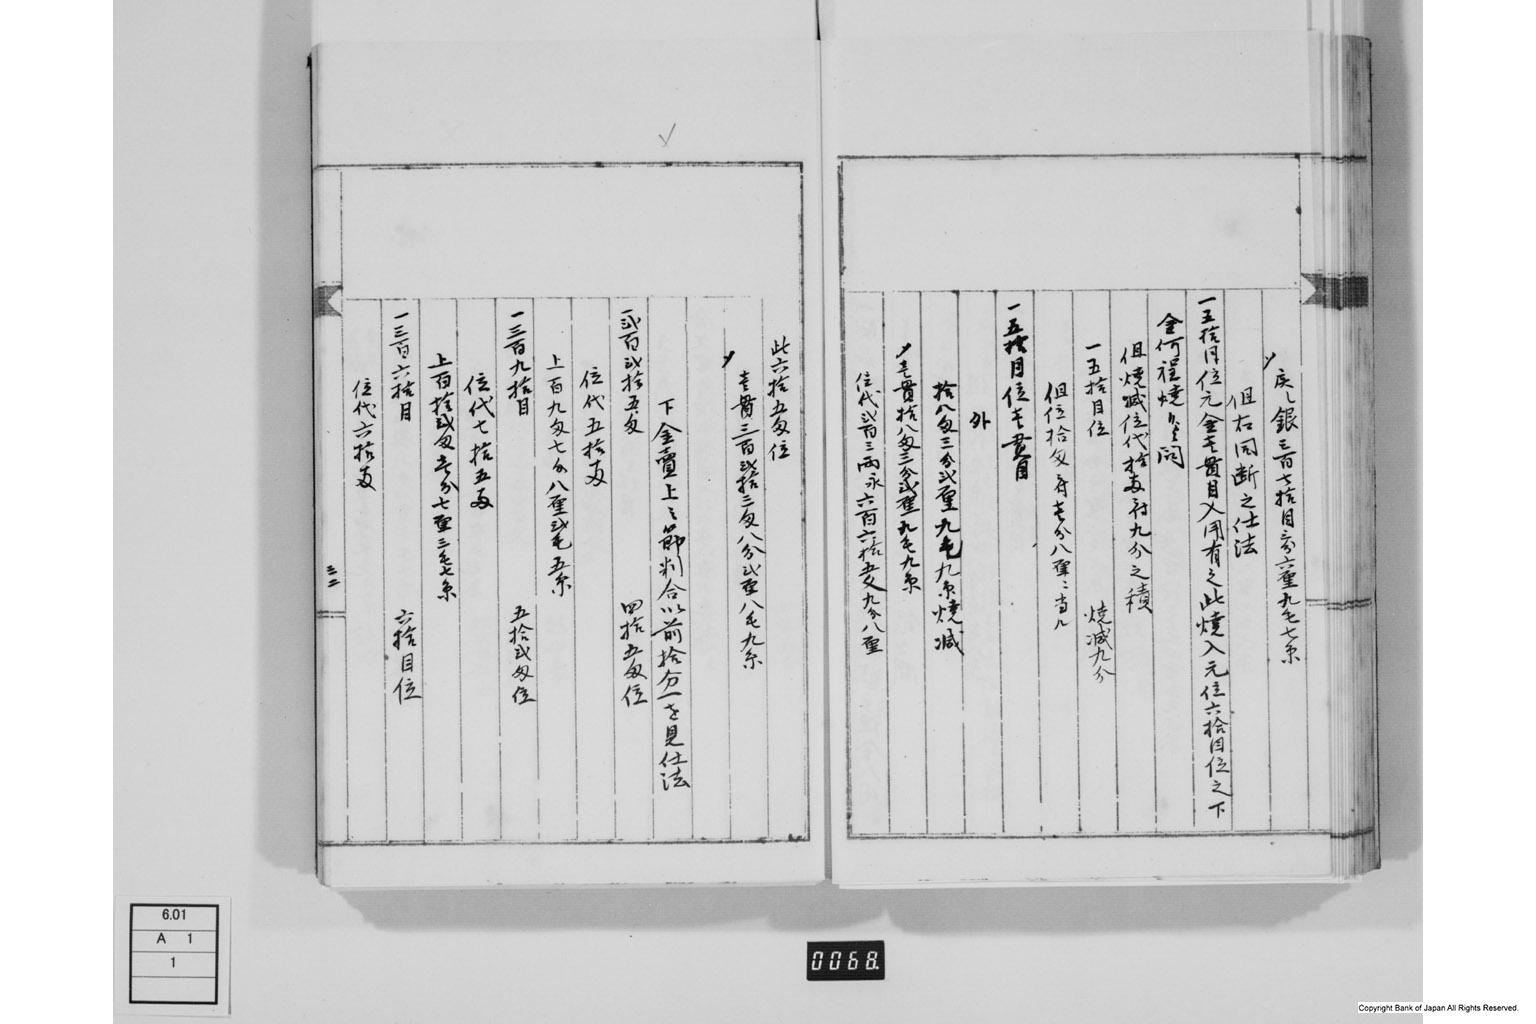 〆戻し銀三百七拾目三分六厘九毛七糸
但右同断之仕法
一五拾目位元金壱貫目入用有之此焼入元位六拾目位之下
金何程焼
但焼減位代拾両ニ付九分之積
一五拾目位 焼減九分
但位拾匁ニ付壱分八厘ニ当ル
一五拾目位壱貫目
外
拾八匁三分弐厘九毛九糸焼減
〆壱貫拾八匁三分弐厘九毛九糸
位代弐百三両永六百六拾五文九分八厘
此六拾五匁位
〆壱貫三百弐拾三匁八分弐厘八毛九糸
下金賣上之節判合以前拾分一を見仕法
一弐百弐拾五匁 四拾五匁位
位代五拾両
上百九匁七分八厘弐毛五糸
一三百九拾目 五拾弐匁位
位代七拾五両
上百拾弐匁壱分七厘三毛七糸
一三百六拾目 六拾目位
位代六拾両
三二
6.01
A 1
1
0068.
Copyright Bank of Japan All Rights Reserved.